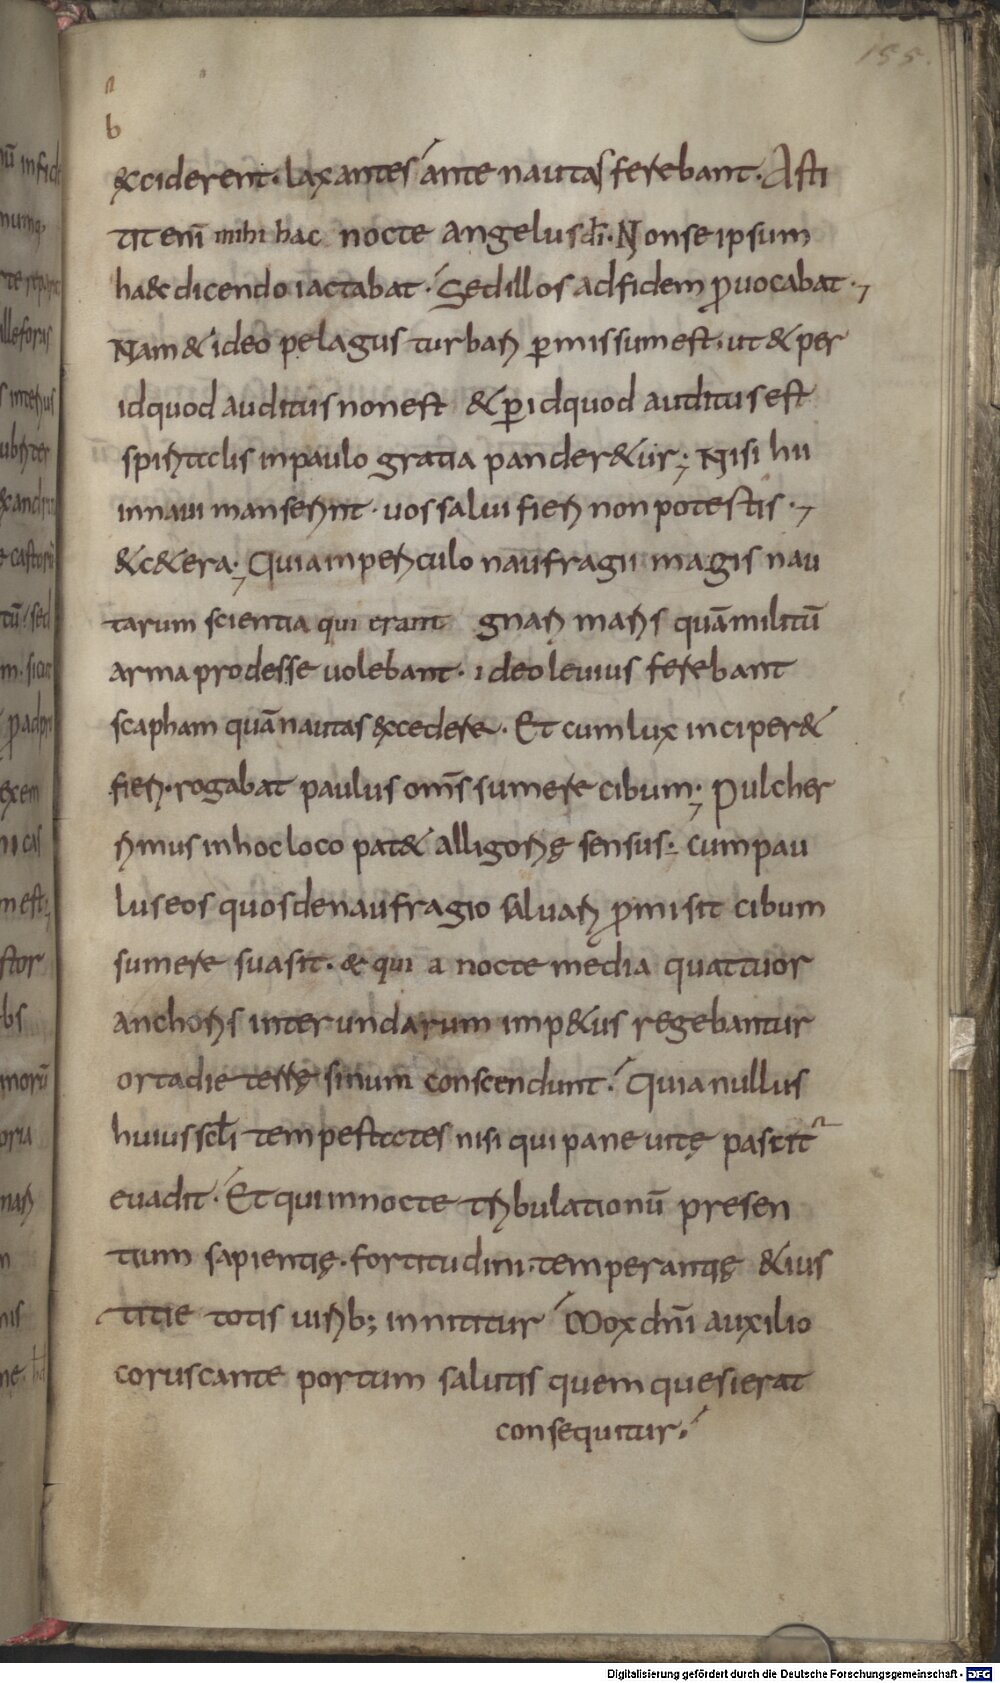 155.
a
b
&ciderent. laxantes ante nautas ferebant. Asti
tit eni͞ mihi hac nocte angelus d͞i. Non se ipsum
haec dicendo iactabat. Sed illos ad fidem ꝓuocabat.
Nam & ideo pelagus turbari ꝑmissum est. ut & per
id quod auditus non est & ꝑ id quod auditus est
spiritalis in paulo gratia pander&ur; Nisi hii
in naui manserint. uos salui fieri non potestis.
& c&era. Quia in periculo naufragii magis nau
tarum scientia qui erant gnari maris quā militū
arma prodesse uolebant. ideo leuius ferebant
scapham quā nautas excedere. Et cum lux inciper&
fieri. rogabat paulus om͞s sumere cibum; Pulcher
rimus in hoc loco pat& alligorię sensus. cum pau
lus eos quos de naufragio saluari ꝓmisit cibum
sumere suasit. & qui a nocte media quattuor
anchoris inter undarum imp&us regebantur
orta die terrę sinum conscendunt. Quia nullus
huius sc͞li tempestates nisi qui pane uitę pascit͛
euadit. Et qui in nocte tribulationū presen
tium sapientię. fortitudini. temperantię & ius
titie totis uirib; innititur Mox dn͞i auxilio
coruscante portum salutis quem quesierat
consequitur.
Digitalisierung gefördert durch die Deutsche Forschungsgemeinschaft - DFG